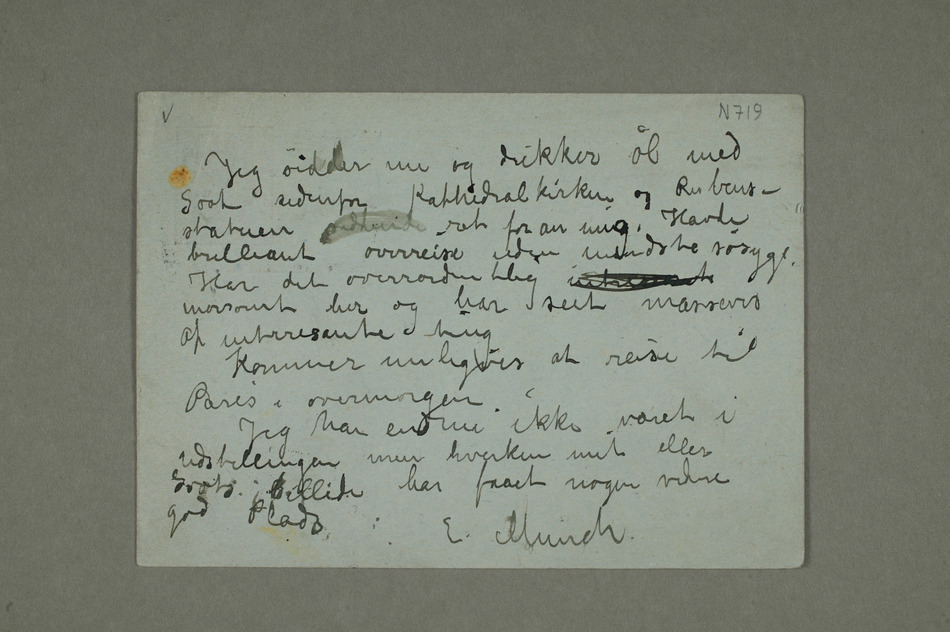 V N719
Jeg sidder nu og drikker öl med
Soot udenfor Kathedralkirken og Rubens-
statuen ret foran mig. Havde
brilliant overreise uden mindste søsyge.
Har det overordentlig
morsomt her og har seet massevis
af interesante ting
Kommer muligvis at reise til
Paris i overmorgen.
Jeg har endnu ikke været i
udstillingen men hverken mit eller
Soots Billede har faaet nogen videre
god Plads
E. Munch.